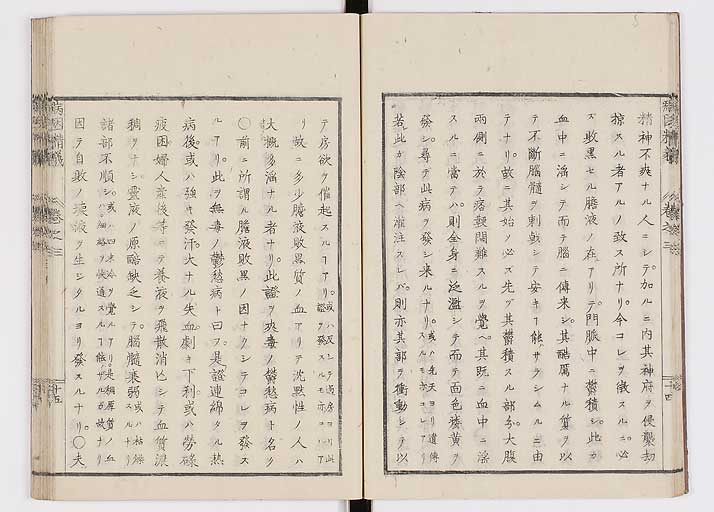 精神不爽ナル人ニシテ。加ルニ内其神府ヲ侵襲劫
掠スル者アルノ致ス所ナリ。今コレヲ徴スルニ。必
ズ收黒セル膽液ノ在アリテ。門脈中ニ欝積シ。此カ
血中ニ滔シテ而テ腦ニ傳来シ。其酷厲ナル質ヲ以
テ不斷腦髓ヲ刺戟シテ安キ能サラシムルニ由
テナリ。故ニ其始メ必ズ先ヅ其欝積スル部分。大腹
兩側ニ於テ痞鞕閊難スルヲ覺ヘ。其既ニ血中ニ滛
スルニ當テハ。則全身ニ泛濫シテ而テ面色痿黄ヲ
發シ。尋テ此病ヲ發シ来ルナリ。或ハ先天ヨリ遺傳スルモノモ亦コレアリ
若此カ陰部ヘ灌注スレバ。則亦其部ヲ衝動シテ以
病因精義 卷之三 十四
テ房欲ヲ催起スルコアリ。或ハ反シテ過房ヨリ此證ヲ發スルモ亦コレアリ
故ニ多少膽液敗黒質ノ血アリテ沈黙性ノ人ハ
大概多滛ナル者ナリ。此證ヲ夾毒ノ欝愁病ト名ク
〇前ニ所謂ル膽液敗黒ノ因ナクシテコレヲ發ス
ルアリ。此ヲ無毒ノ欝愁病ト曰フ。是證連綿タル熱
病後。或ハ強キ發汗。大ナル失血。劇キ下利。或ハ勞碌
疲困。婦人産後等ニテ養液ヲ飛散消亡シテ血質濃
稠ヲナシ。靈液ノ原輸缺乏シテ。腦髓衰弱 或ハ枯燥スルナリ
諸部不順シ。
因テ自敗ノ液ヲ生シタルヨリ發スルナリ。〇夫
病因精義 卷之三 十五